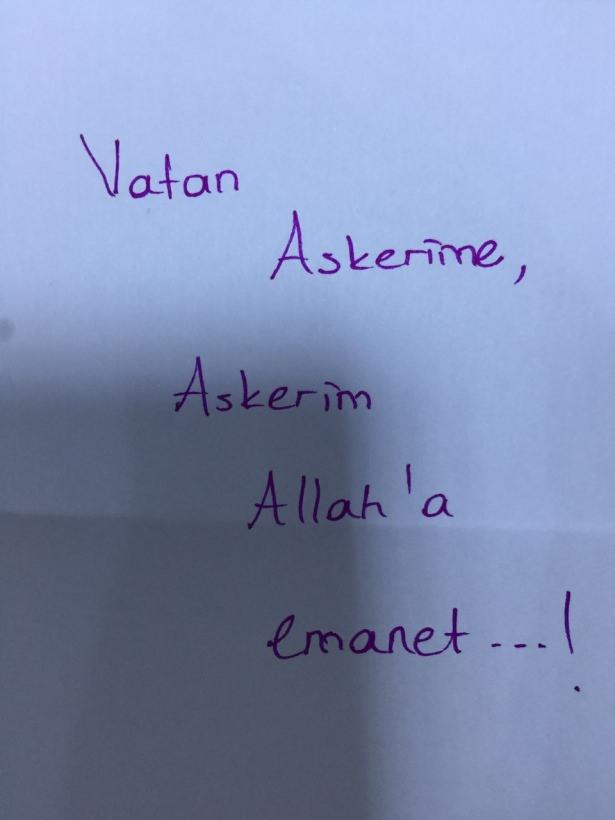 Vatan
Askerime,
Askerim
Allah'a
emanet...!